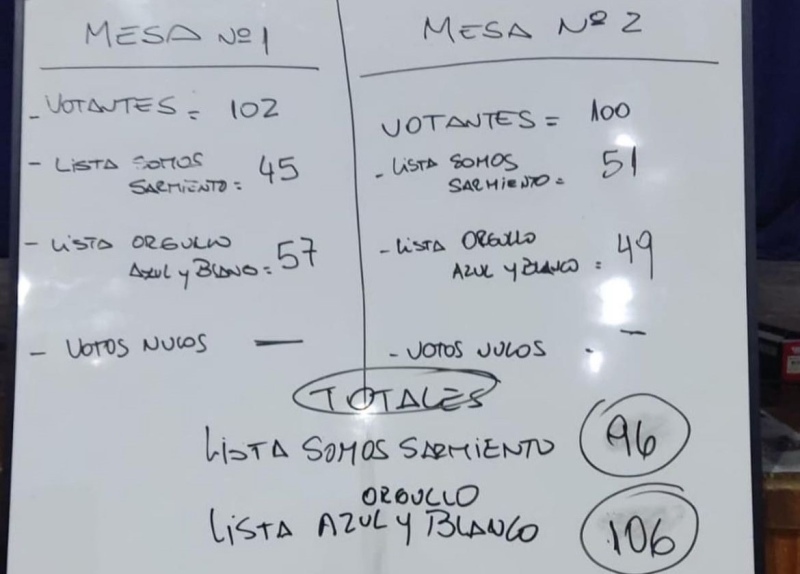 MESA Nº1
- VOTANTES = 102
- LISTA SOMOS
SARMIENTO = 45
- LISTA ORGULLO
AZUL y BLANO = 57
- VOTOS NULOS —
MESA Nº 2
VOTANTES = 100
- LISTA SOMOS
SARMIENTO = 51
- LISTA ORGULLO
AZUL Y BLANCO = 49
- VOTOS NULOS - —
TOTALES
LISTA SOMOS SARMIENTO 96
ORGULLO
LISTA AZUL Y BLANCO 106